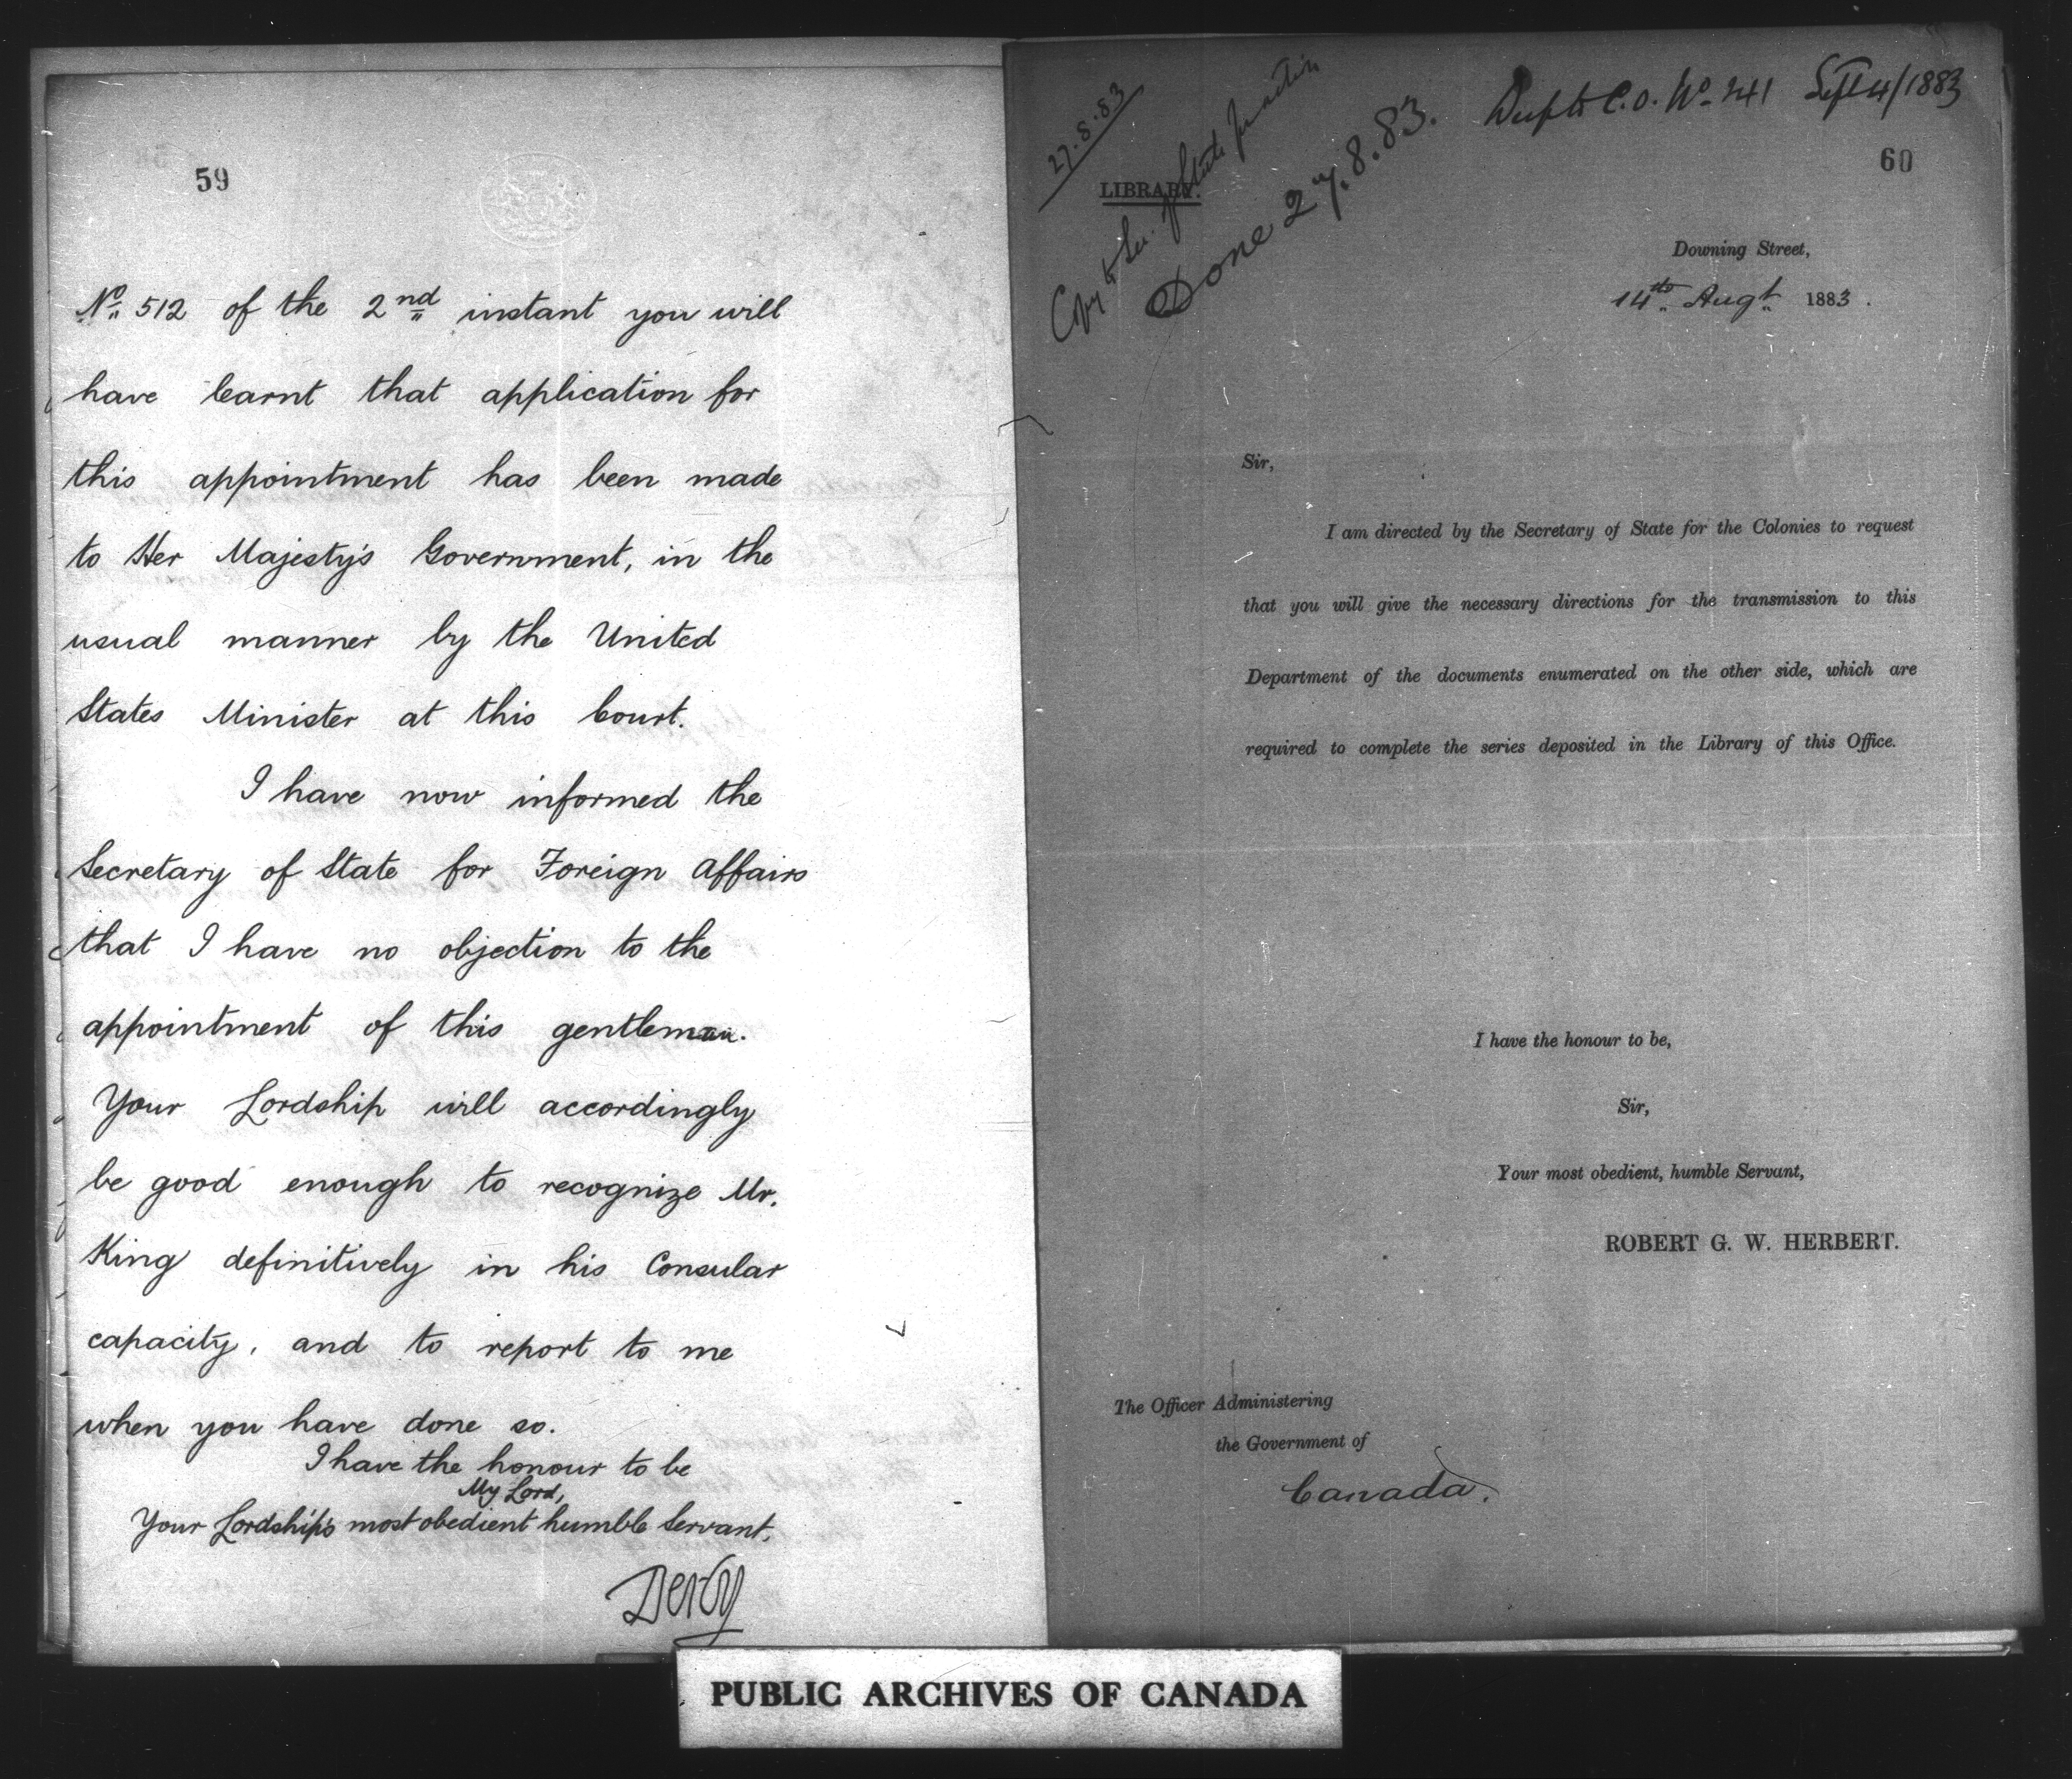 59
No. 512 of the 2nd instant you will
have learnt that application for
this appointment has been made
to Her Majesty's Government, in the
usual manner by the United
States Minister at this Court.
I have now informed the
Secretary of State for Foreign Affairs
that I have no objection to the
appointment of this gentleman.
Your Lordship will accordingly
be good enough to recognize Mr.
King definitively in his Consular
capacity, and to report to me
when you have done so.
I have the honour to be
My Lord,
Your Lordship's most obedient humble Servant,
Derby
27.8.83
LIBRARY.
Copy to Sec. of State
Done 27.8.83.
C.O. No. 241 Sept 4/1883
60
Downing Street,
14th Augt. 1883.
Sir,
I am directed by the Secretary of State for the Colonies to request
that you will give the necessary directions for the transmission to this
Department of the documents enumerated on the other side, which are
required to complete the series deposited in the Library of this Office.
I have the honour to be,
Sir,
Your most obedient, humble Servant,
ROBERT G. W. HERBERT.
The Officer Administering
the Government of
Canada.
PUBLIC ARCHIVES OF CANADA